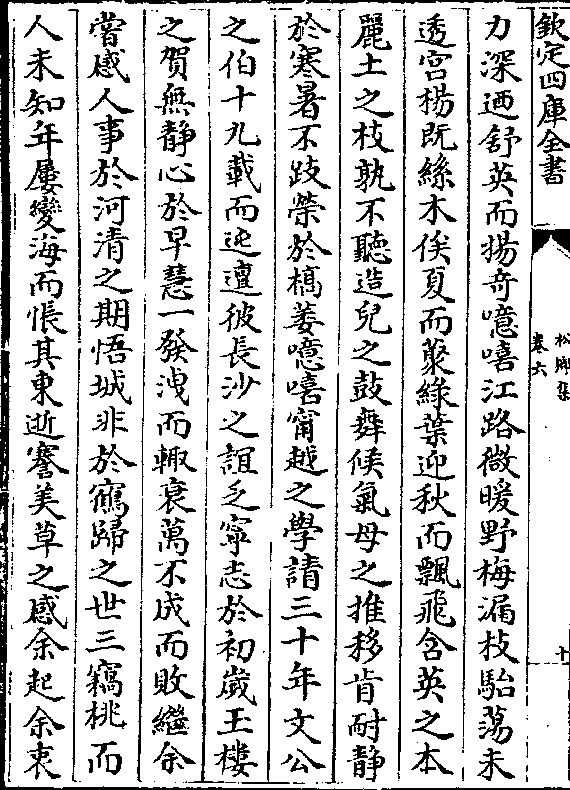 欽定四庫全書
松鄉集
卷六
十
力深迺舒英而揚竒噫嘻江路微暖野梅漏枝駘蕩未
透宫楊既絲木俟夏而藂緑葉迎秋而飄飛含英之本
麗土之枝孰不聽造兒之鼓舞候氣母之推移肯耐静
於寒暑不跂榮於槁萎噫嘻甯越之學請三十年文公
之伯十九載而迍邅彼長沙之誼乏寧志於初歲玉樓
之賀無静心於早慧一發洩而輙衰萬不成而敗繼余
嘗感人事於河清之期悟城非於鶴歸之世三竊桃而
人未知年屢變海而悵其東逝謇美草之感余起余衷